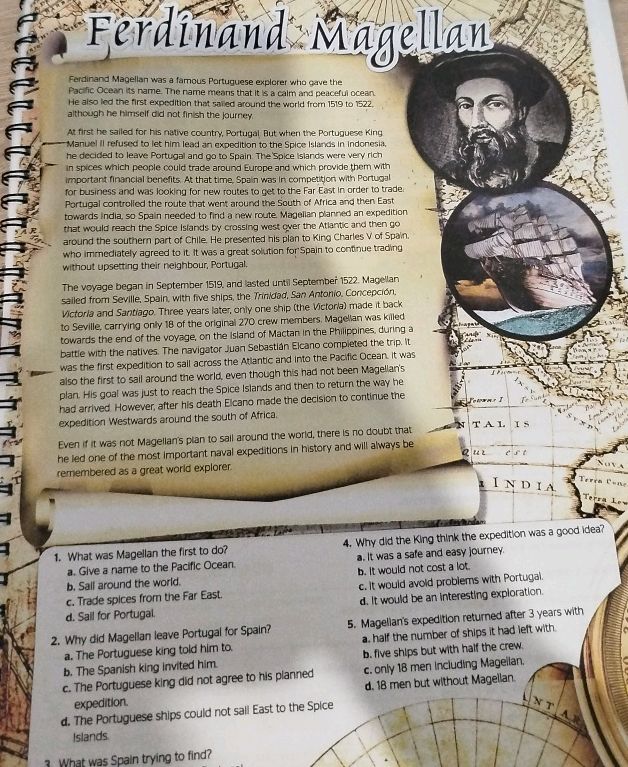 Ferdinand Magellan
Ferdinand Magellan was a famous Portuguese explorer who gave the
Pacific Ocean its name. The name means that it is a calm and peaceful ocean.
He also led the first expedition that sailed around the world from 1519 to 1522,
although he himself did not finish the journey.
At first he sailed for his native country, Portugal. But when the Portuguese King
Manuel II refused to let him lead an expedition to the Spice Islands in Indonesia,
he decided to leave Portugal and go to Spain. The Spice Islands were very rich
in spices which people could trade around Europe and which provide them with
important financial benefits. At that time, Spain was in competition with Portugal
for business and was looking for new routes to get to the Far East in order to trade.
Portugal controlled the route that went around the South of Africa and then East
towards India, so Spain needed to find a new route. Magellan planned an expedition
that would reach the Spice Islands by crossing west over the Atlantic and then go
around the southern part of Chile. He presented his plan to King Charles V of Spain,
who immediately agreed to it. It was a great solution for Spain to continue trading
without upsetting their neighbour, Portugal.
The voyage began in September 1519, and lasted until September 1522. Magellan
sailed from Seville, Spain, with five ships, the Trinidad, San Antonio, Concepción,
Victoria and Santiago. Three years later, only one ship (the Victoria) made it back
to Seville, carrying only 18 of the original 270 crew members. Magellan was killed
towards the end of the voyage, on the island of Mactan in the Philippines, during a
battle with the natives. The navigator Juan Sebastián Elcano completed the trip. It
was the first expedition to sail across the Atlantic and into the Pacific Ocean. It was
also the first to sail around the world, even though this had not been Magellan's
plan. His goal was just to reach the Spice Islands and then to return the way he
had arrived. However, after his death Elcano made the decision to continue the
expedition Westwards around the south of Africa.
Even if it was not Magellan's plan to sail around the world, there is no doubt that
he led one of the most important naval expeditions in history and will always be
remembered as a great world explorer.
NTAL IS
Qui est
INDIA
NOVA
Terra
Terra
1. What was Magellan the first to do?
a. Give a name to the Pacific Ocean.
b. Sail around the world.
c. Trade spices from the Far East.
d. Sail for Portugal.
2. Why did Magellan leave Portugal for Spain?
a. The Portuguese king told him to.
b. The Spanish king invited him.
c. The Portuguese king did not agree to his planned
expedition.
d. The Portuguese ships could not sail East to the Spice
Islands.
3. What was Spain trying to find?
4. Why did the King think the expedition was a good idea?
a. It was a safe and easy journey.
b. It would not cost a lot.
c. It would avoid problems with Portugal.
d. It would be an interesting exploration.
5. Magellan's expedition returned after 3 years with
a. half the number of ships it had left with.
b. five ships but with half the crew.
c. only 18 men including Magellan.
d. 18 men but without Magellan.